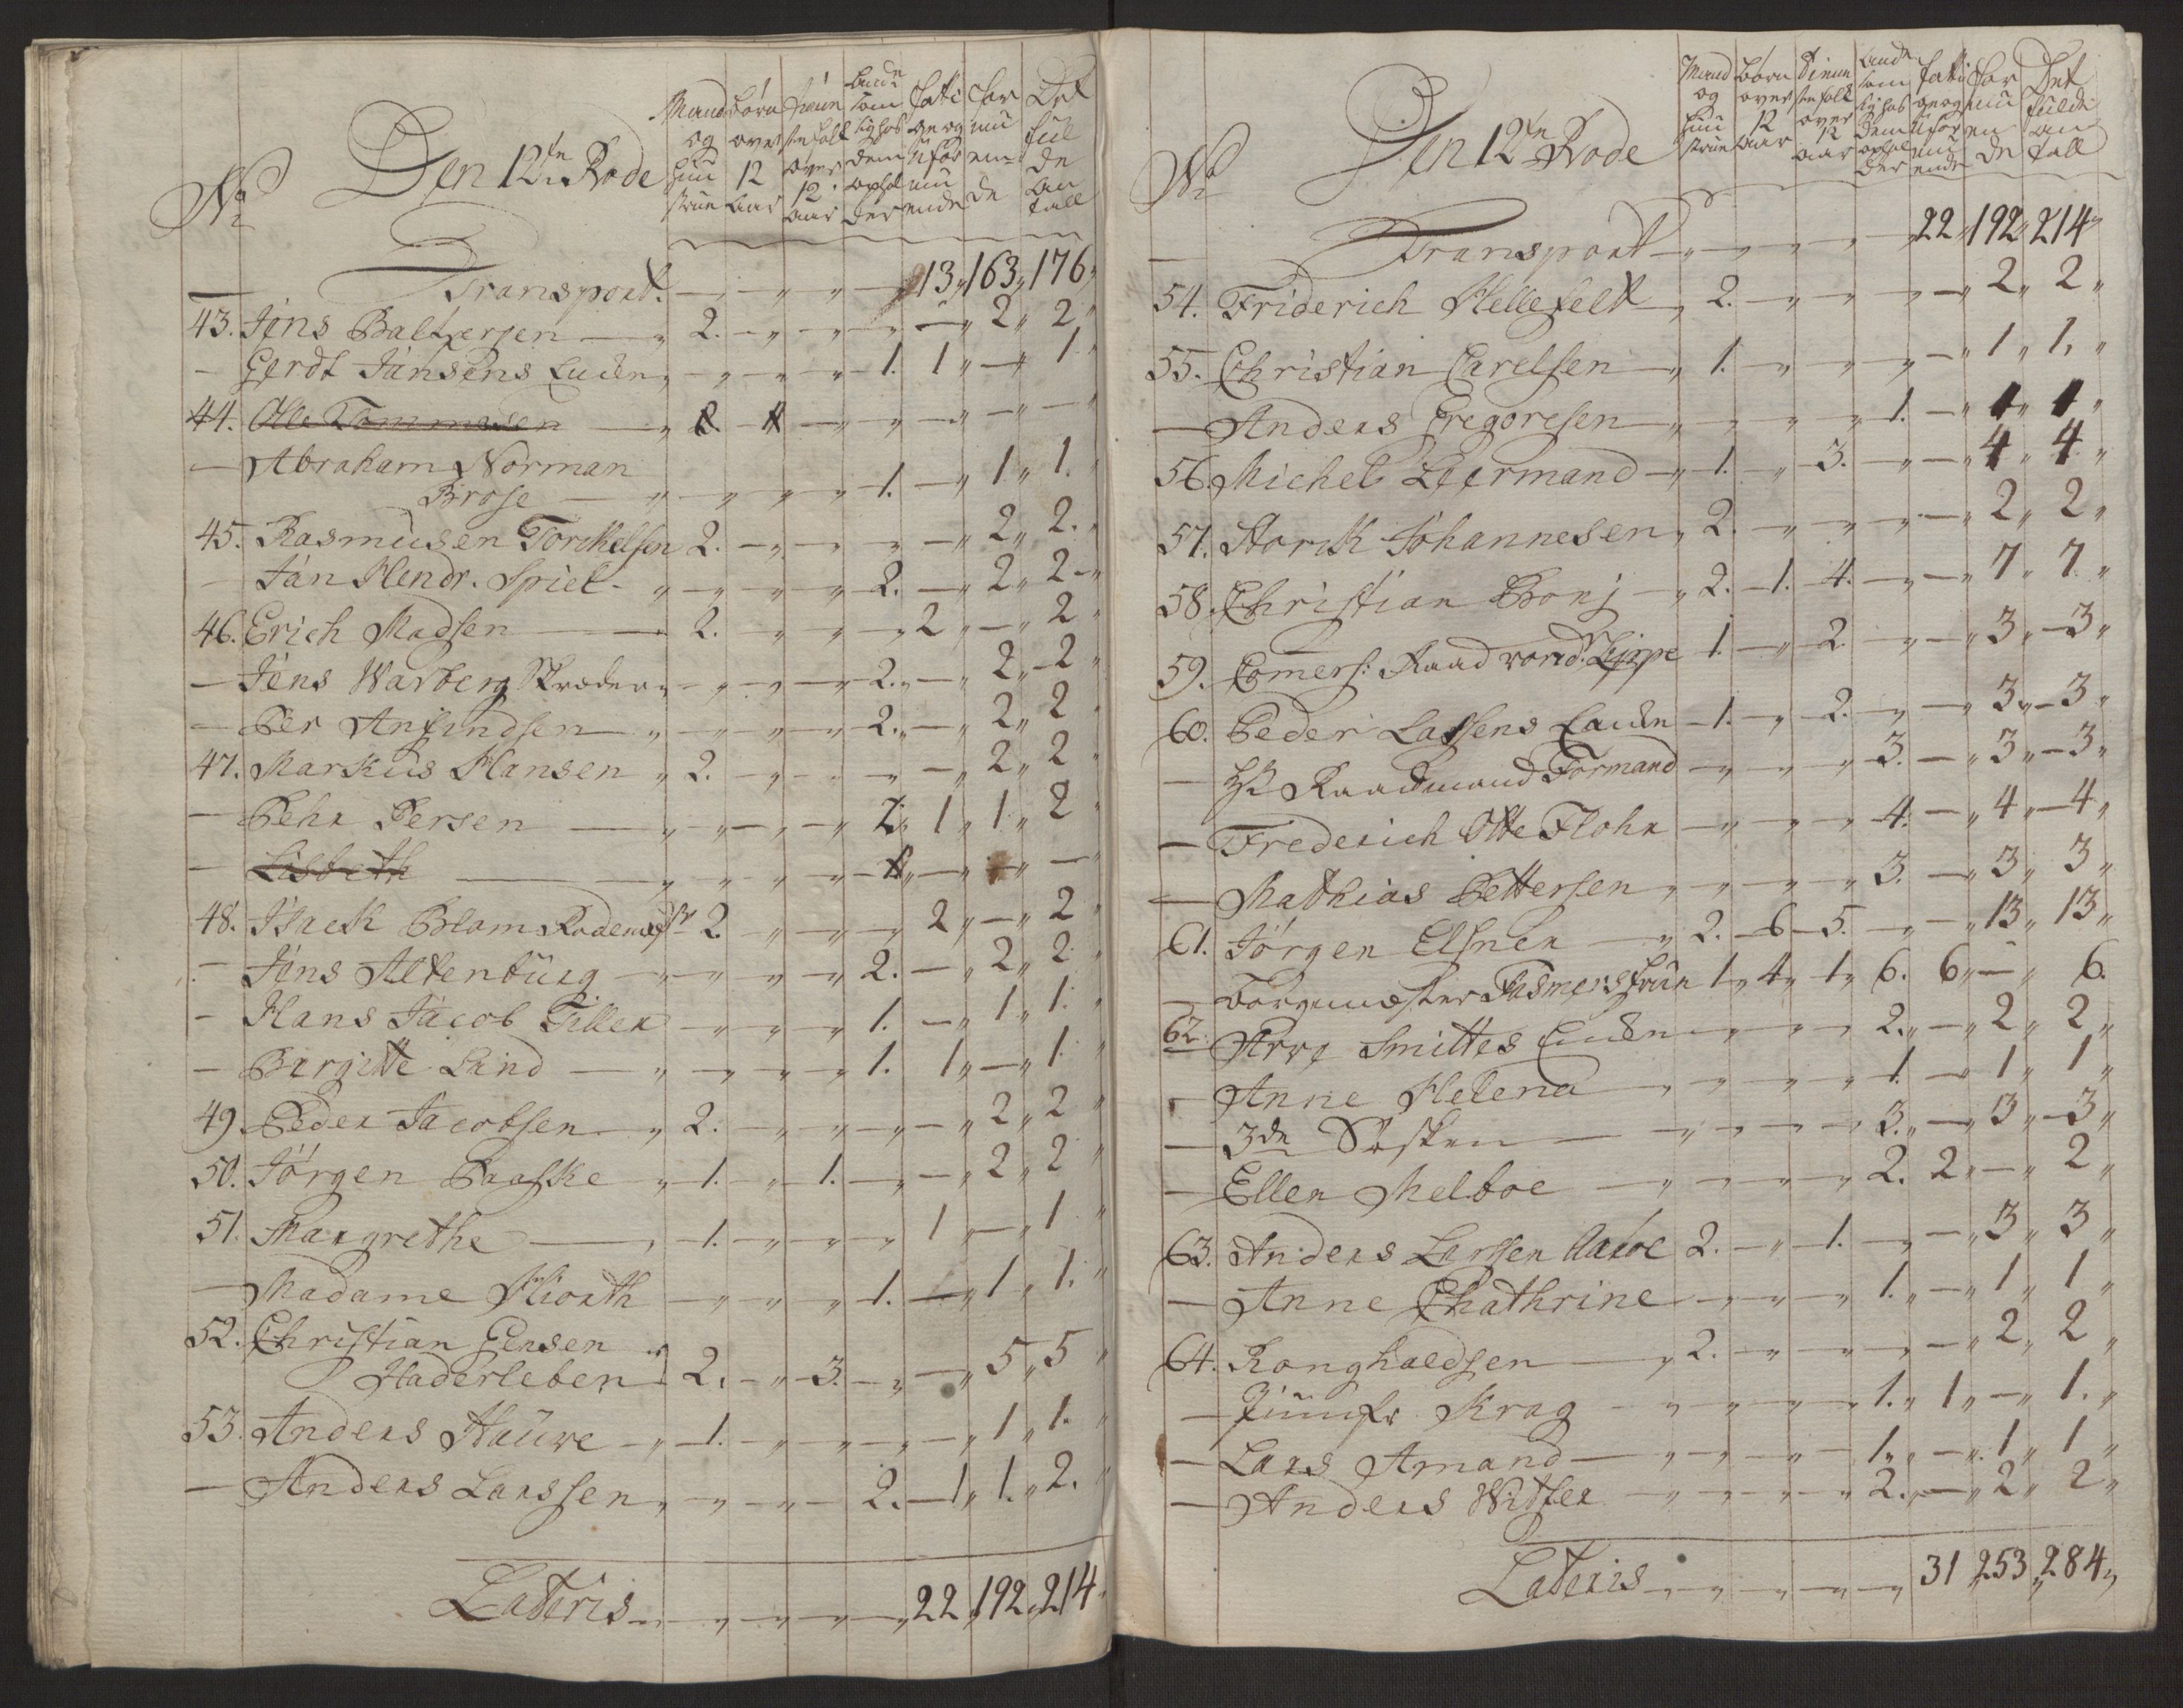 No Den 12te Rode
Mand og Huustrue
Børn over 12 Aar
Tienistefolk over 12 Aar
Andre som sig hos dem opholder
Fattige og uformuende
Formuende
Det fulde Antall
Transport. 13 163 176
43. Jens Baltzersen 2. 2 2
Gerdt Jansens Enken 1. 1 1
44. Olle Tommesen
Abraham Norman
Brose 1. 1 1.
45. Rasmusen Torchelsen 2. 2 2.
Jan Hendr. Spiel 2. 2 2
46. Erich Madsen 2. 2 2
Jens Warberg Skræder 2. 2 2
Per Anfindsen 2. 2 2
47. Markus Hansen 2. 2 2
Pehr Persen 2. 1 1 2
Lisbeth
48. Isack Blom Rodemester 2 2 2
Jens Altenburg 2. 2 2
Hans Jacob Tiller 1. 1 1.
Birgitte Lind 1. 1 1.
49. Peder Jacobsen 2. 2 2
50. Jørgen Paaske 1. 1. 2 2
51. Margrethe 1. 1 1
Madame Hiorth 1. 1 1.
52. Christian Jensen
Haderleben 2. 3. 5 5
53. Anders Hauwe 1. 1 1.
Anders Larssen 2. 1 1. 2.
Lateris 22 192 214
No Den 12te Rode
Mand og Huustrue
Børn over 12 Aar
Tienistefolk over 12 Aar
Andre som sig hos dem opholder
Fattige og uformuende
Formuende
Det fulde Antall
Transport 22 192 214
54. Friderich Hellefelt 2. 2 2
55. Christian Carelsen 1. 1 1.
Anders Gregoresen 1. 1 1
56. Michel Leermand 1. 3. 4 4
57. Horck Johannesen 2. 2 2
58. Christian Bonj 2. 1. 4. 7 7
59. Comers: Raad vond. Lippe 1. 2. 3 3
60. Peder Lassens Enken 1. 2. 3 3
Hr Raadmand Formand 3. 3 3
Frederich Otte Flohr 4. 4 4
Mathias Pettersen 3. 3 3
61. Jørgen Elsner 2. 6 5. 13 13
Borgemester Fasmers Frue 1 4 1 6. 6 6.
62. Arve Smittes Enken 2. 2 2
Anne Helena 1. 1 1
3de Søsken 3. 3 3
Ellen Melboe 2. 2 2
63. Anders Larssen Aaroe 2. 1. 3 3
Anne Chathrine 1. 1 1
64. Ronghaldsen 2. 2 2
Jumfr Krag 1. 1 1.
Lars Amand 1. 1 1
Anders Witter 2. 2 2
Lateris 31 253 284